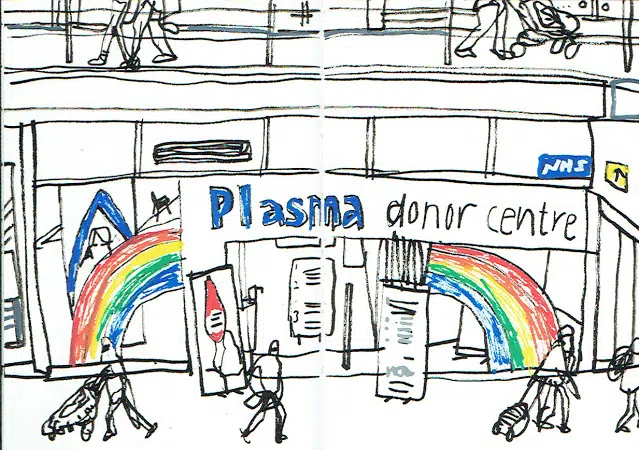 NHS
Plasma donor centre